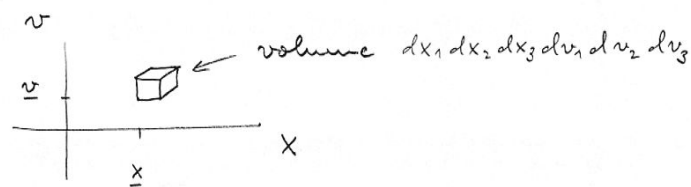 v
volume dx₁ dx₂ dx₃ dv₁ dv₂ dv₃
v
x
X